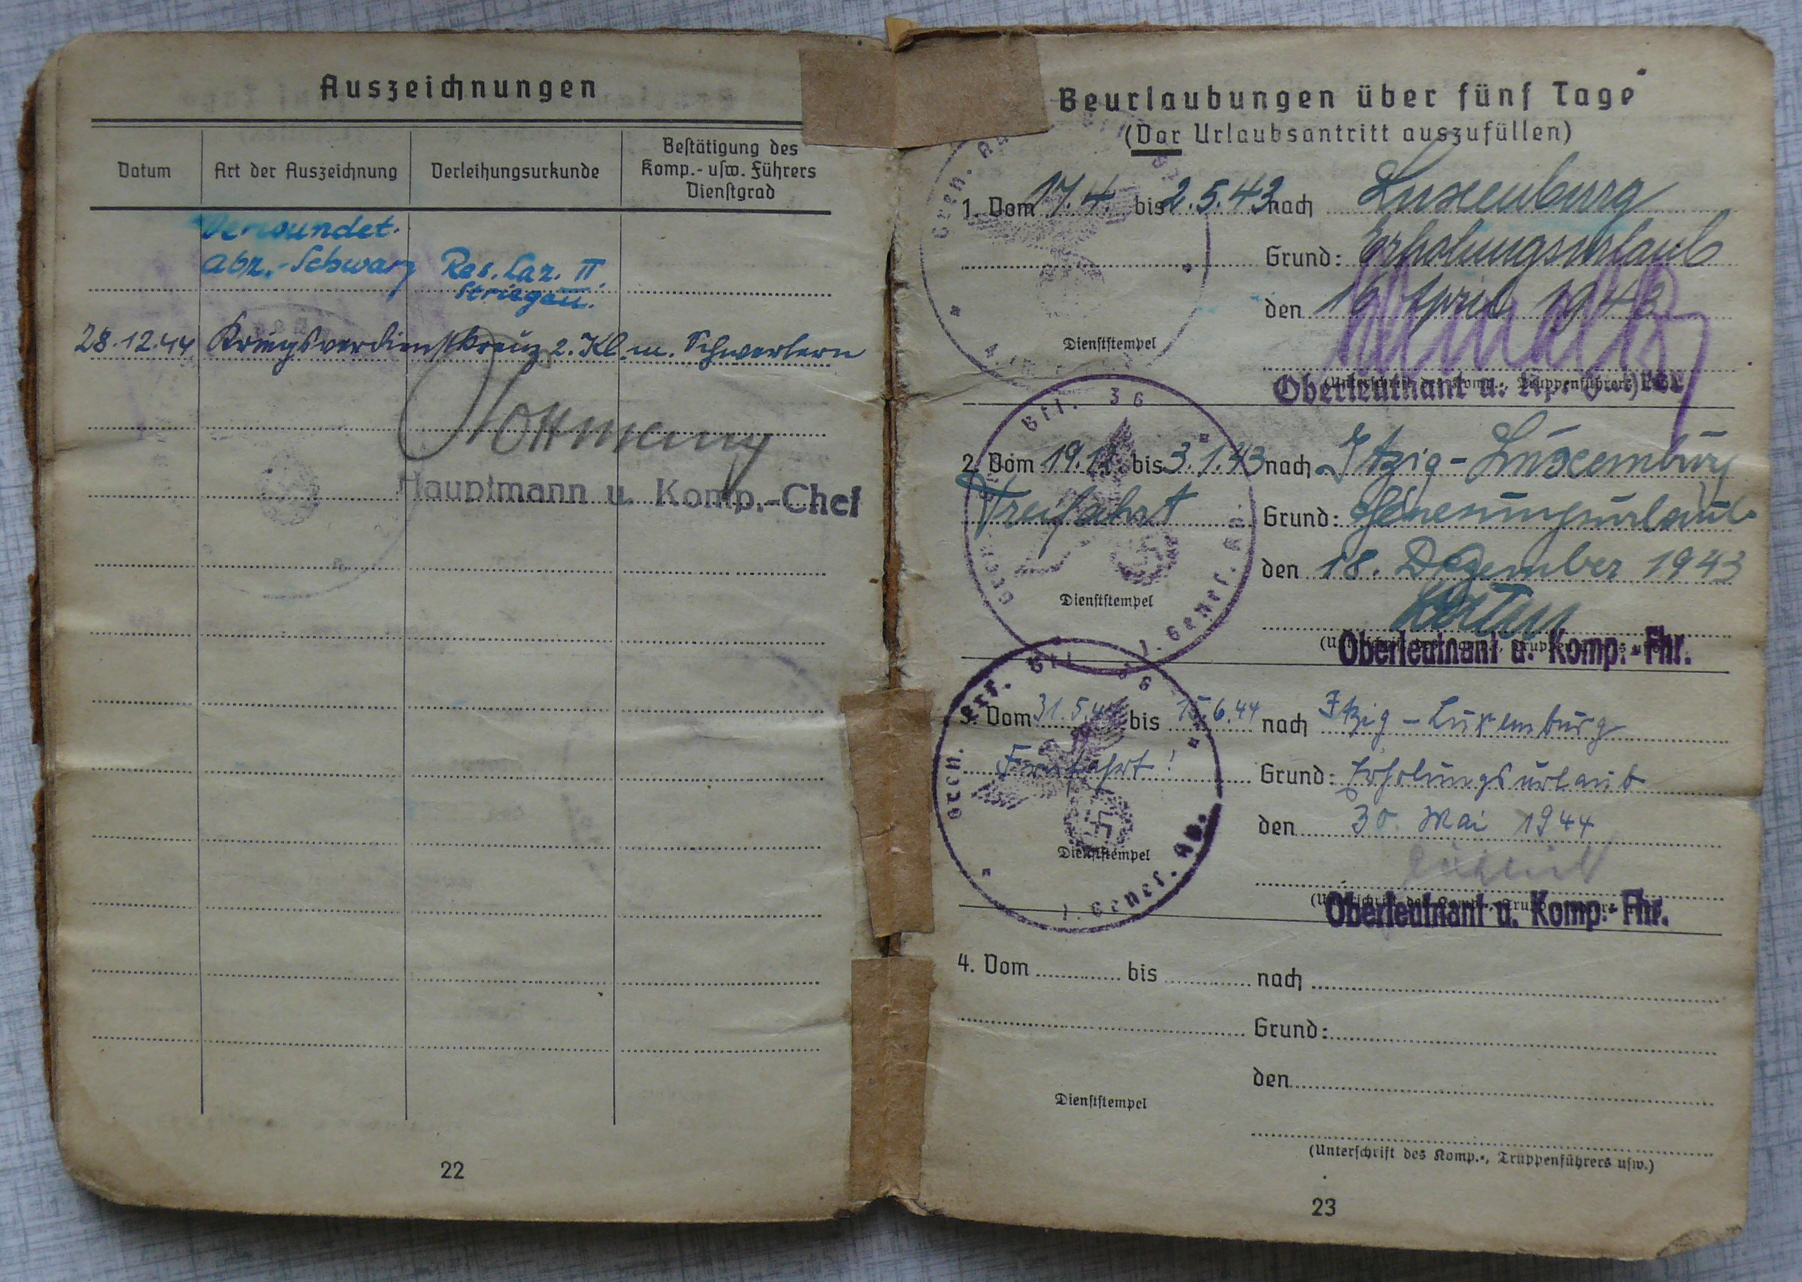 Auszeichnungen
Datum
Art der Auszeichnung
Verleihungsurkunde
Bestätigung des
Komp.- usw. Führers
Dienstgrad
Verwundet.
Abz.-Schwarz Res. Laz. II
Striegau.
28.12.44 Kriegsverdienstkreuz 2. Kl. m. Schwertern
Hauptmann u. Komp.-Chef
22
Beurlaubungen über fünf Tage
(Vor Urlaubsantritt auszufüllen)
1. Vom 17.4. bis 2.5.43 nach Luxemburg
Grund: Erholungsurlaub
den 16 April 1943
Dienststempel
Oberleutnant u.
2. Vom 19.12. bis 3.1.43 nach Itzig-Luxemburg
Freifahrt Grund: Genesungsurlaub
den 18. Dezember 1943
Dienststempel
Oberleutnant u. Komp.-Fhr.
3. Vom 31.5.44 bis 15.6.44 nach Itzig-Luxemburg
Freifahrt! Grund: Erholungsurlaub
den 30. Mai 1944
Dienststempel
Oberleutnant u. Komp.-Fhr.
4. Vom bis nach
Grund:
den
Dienststempel
(Unterschrift des Komp.-, Truppenführers usw.)
23